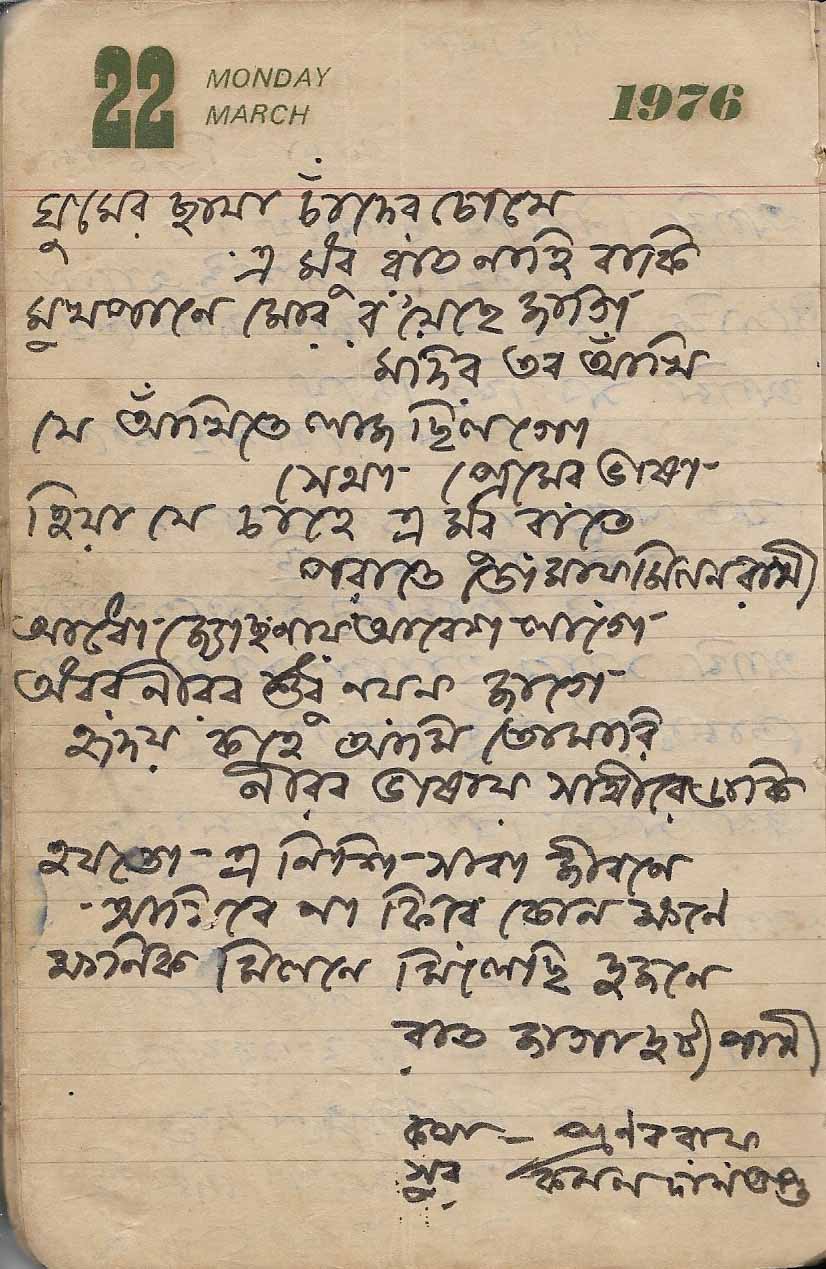 22 MONDAY
MARCH
1976
ঘুমের ছায়া চাঁদের চোখে
এ মধু রাত নাহি বাকি
মুখপানে মোর র'য়েছে জাগি
মদির তব আঁখি
যে আঁখিতে লাজ ছিল গো
সেথা প্রেমের ভাষা
হিয়া যে চাহে এ মধু রাতে
পরাতে তোমায় মিলন রাখী
আধো জ্যোছনায় আবেশ লাগে
অধর নীরব শুধু নয়ন জাগে
হৃদয় কহে আমি তোমারি
নীরব ভাষায় সাথীরে ডাকি
হয়তো এ নিশি সারা জীবনে
আসিবে না ফিরে কোন ক্ষনে
ক্ষনিক মিলনে মিলেছি দুজনে
রাত জাগা দুটী পাখী
কথা - প্রণব রায়
সুর কমল দাসগুপ্ত